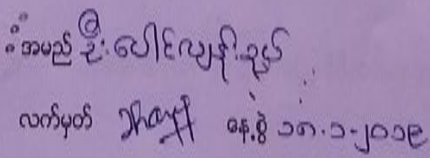 အမည် ဦးပေါင်လျန်ညွယ်
လက်မှတ်
နေ့စွဲ ၁၈.၁-၂၀၁၉